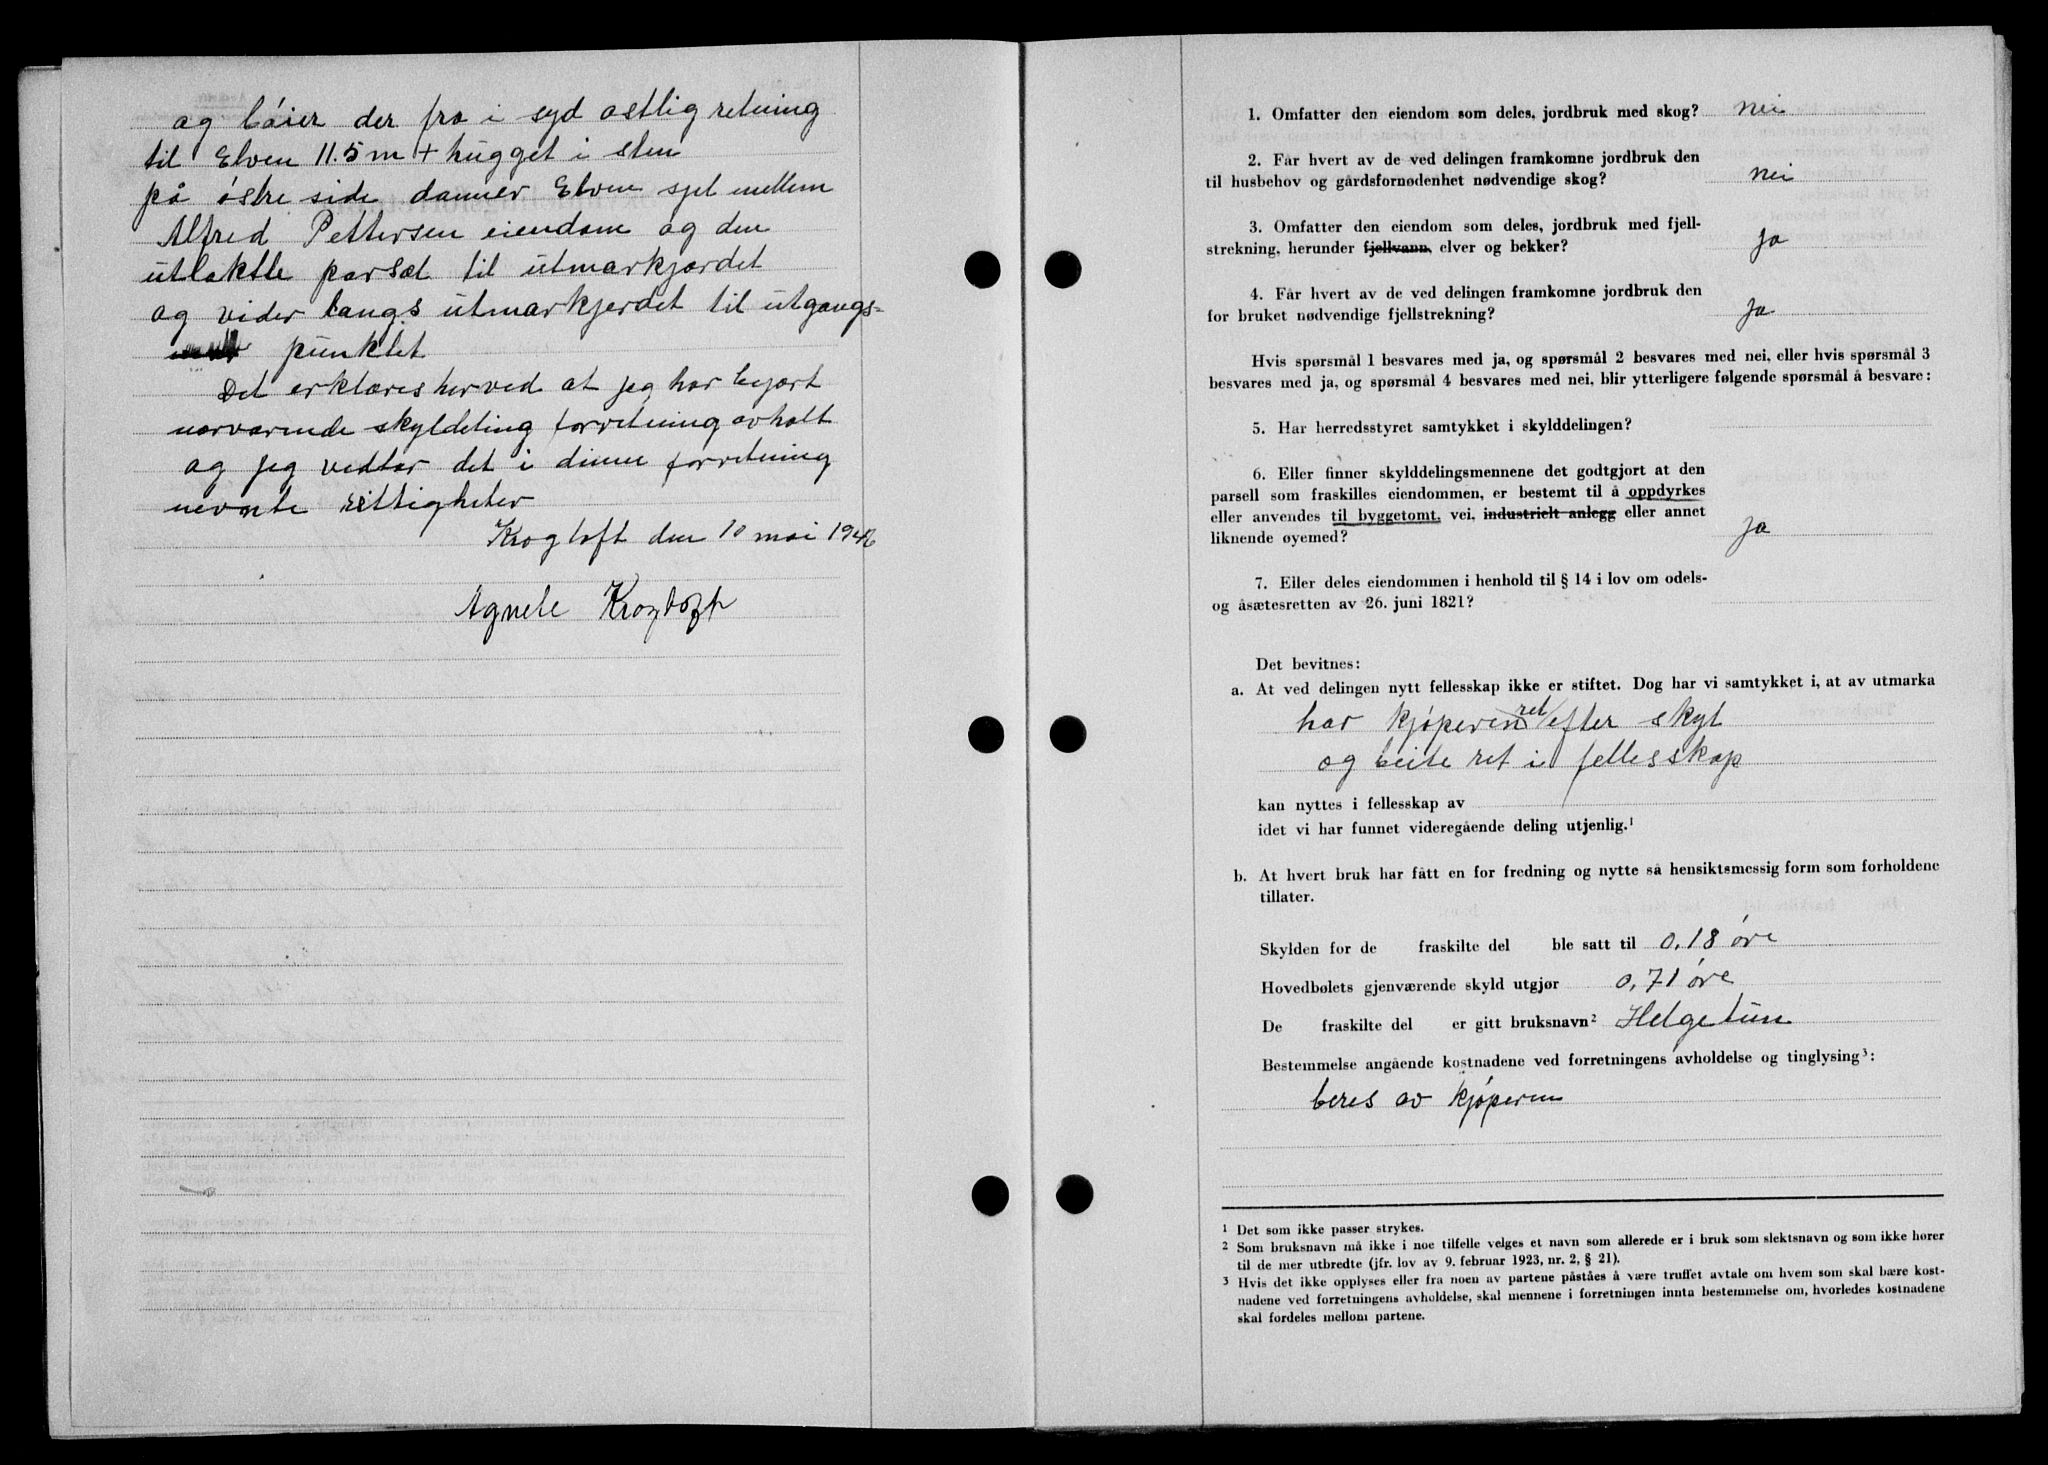 og bøier der fra i syd ostlig retning
til Elven 11.5 m + hugget i sten
på østre side danner Elven sjel mellem
Alfred Pettersen eiendom og den
utlakte parsel til utmarkjærdet
og vider langs utmarkjerdet til utgangs=
punktet
Det erklæres herved at jeg har begjært
nærværende skyldeling forretning avholt
og jeg vedtar det i dinne forretning
nevnte rettigheter
Krogtoft den 10 mai 1946
Agnete Krogtoft
1. Omfatter den eiendom som deles, jordbruk med skog? nei
2. Får hvert av de ved delingen framkomne jordbruk den
til husbehov og gårdsfornødenhet nødvendige skog? nei
3. Omfatter den eiendom som deles, jordbruk med fjell-
strekning, herunder fjellvann, elver og bekker? ja
4. Får hvert av de ved delingen framkomne jordbruk den
for bruket nødvendige fjellstrekning? ja
Hvis spørsmål 1 besvares med ja, og spørsmål 2 besvares med nei, eller hvis spørsmål 3
besvares med ja, og spørsmål 4 besvares med nei, blir ytterligere følgende spørsmål å besvare:
5. Har herredsstyret samtykket i skylddelingen?
6. Eller finner skylddelingsmennene det godtgjort at den
parsell som fraskilles eiendommen, er bestemt til å oppdyrkes
eller anvendes til byggetomt, vei, industrielt anlegg eller annet
liknende øyemed? ja
7. Eller deles eiendommen i henhold til § 14 i lov om odels-
og åsætesretten av 26. juni 1821?
Det bevitnes:
a. At ved delingen nytt fellesskap ikke er stiftet. Dog har vi samtykket i, at av utmarka
har kjøperen ret efter skyl
og beite ret i fellesskap
kan nyttes i fellesskap av
idet vi har funnet videregående deling utjenlig.¹
b. At hvert bruk har fått en for fredning og nytte så hensiktsmessig form som forholdene
tillater.
Skylden for de fraskilte del ble satt til 0,18 øre
Hovedbølets gjenværende skyld utgjør 0,71 øre
De fraskilte del er gitt bruksnavn² Helgetun
Bestemmelse angående kostnadene ved forretningens avholdelse og tinglysing³:
beres av kjøperen
¹ Det som ikke passer strykes.
² Som bruksnavn må ikke i noe tilfelle velges et navn som allerede er i bruk som slektsnavn og som ikke hører
til de mer utbredte (jfr. lov av 9. februar 1923, nr. 2, § 21).
³ Hvis det ikke opplyses eller fra noen av partene påståes å være truffet avtale om hvem som skal bære kost-
nadene ved forretningens avholdelse, skal mennene i forretningen innta bestemmelse om, hvorledes kostnadene
skal fordeles mellom partene.